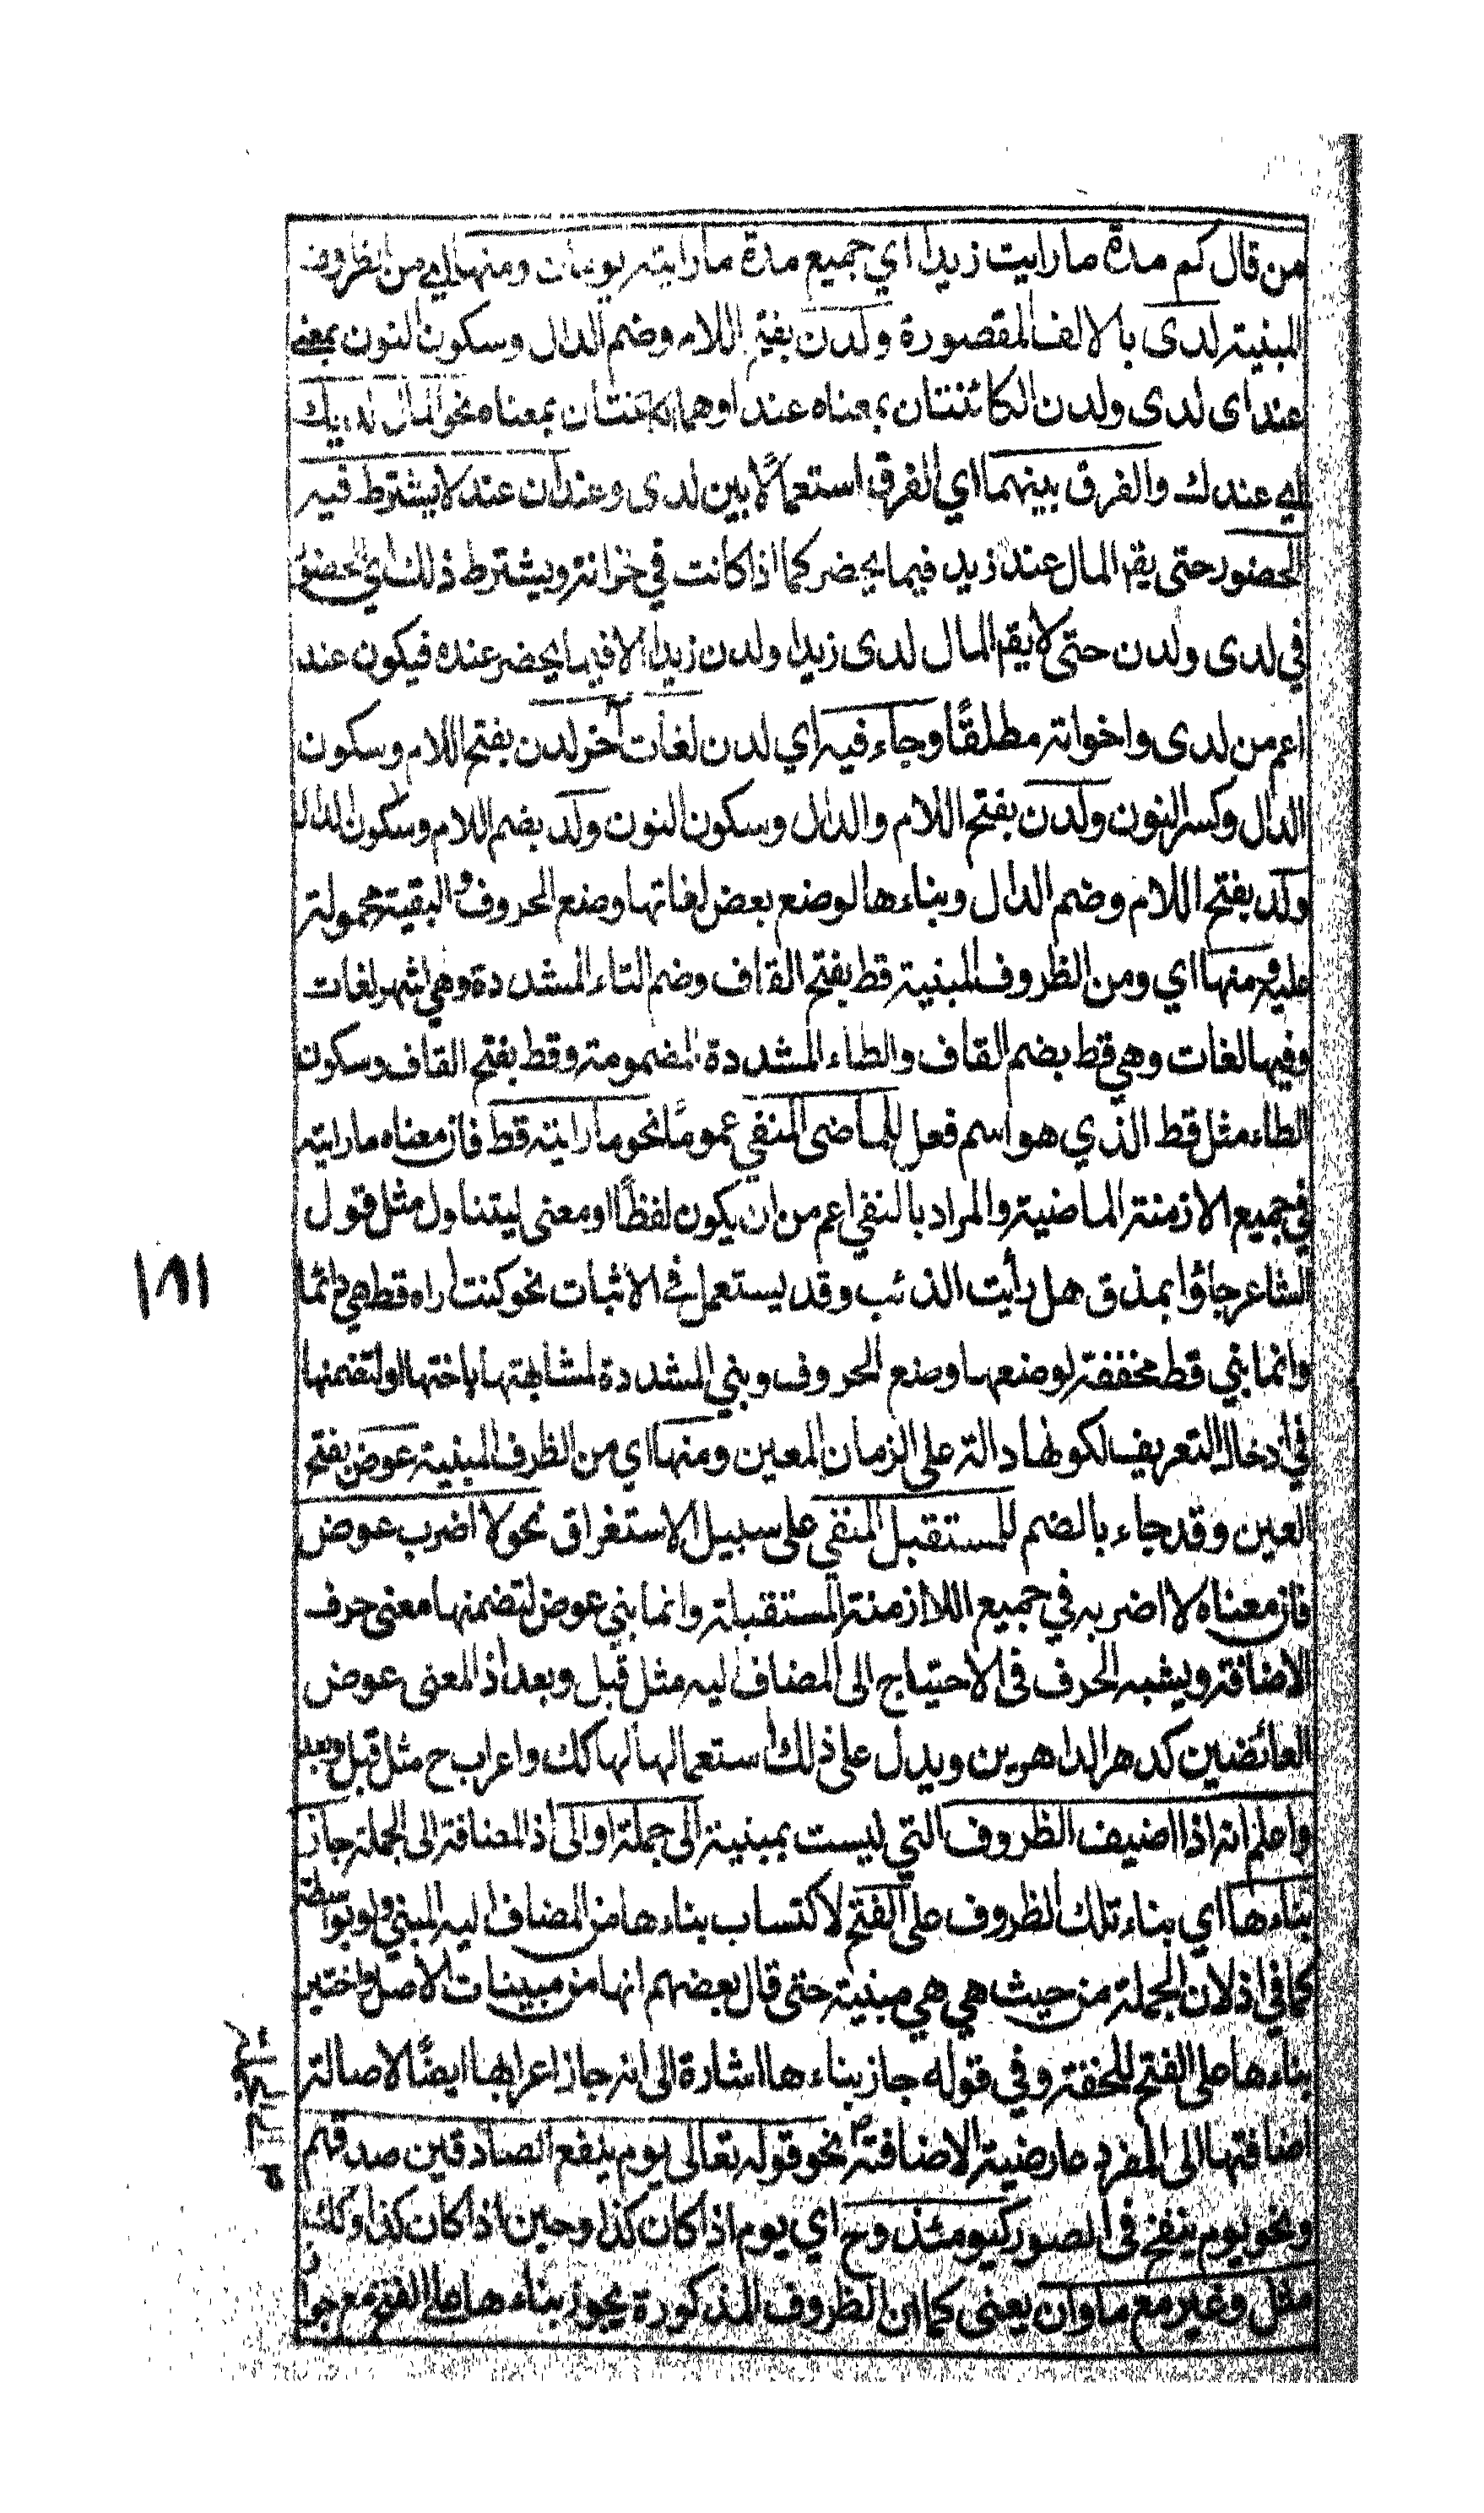 من قال كم مدة ما رايت زيدا اي جميع مدة ما رايته يومان ومنها اي من الظروف
المبنية لدى بالالف المقصورة ولدن بفتح اللام وضم الدال وسكون النون بمعنى
عند اى لدى ولدن الكائنتان بمعناه عند اوهما كائنتان بمعناه نحو المال لديك
اي عندك والفرق بينهما اي الفرق استعمالًا بين لدى وعند ان عند لا يشترط فيه
الحضور حتى يقم المال عند زيد فيما يحضر كما اذا كانت في خزانته ويشترط ذلك اي الحضور
في لدى ولدن حتى لا يقم المال لدى زيدا ولدن زيدا الا فيما يحضر عنده فيكون عند
اعم من لدى واخواته مطلقًا وجاء فيه اي لدن لغات آخر لدن بفتح اللام وسكون
الدال وكسر النون ولدن بفتح اللام والدال وسكون النون ولد بضم اللام وسكون الدال
ولد بفتح اللام وضم الدال وبناءها لوضع بعض لغاتها وضع الحروف والبقية محمولة
عليه ومنها اي ومن الظروف المبنية قط بفتح القاف وضم التاء المشددة وهي اشهر لغات
وفيها لغات وهي قط بضم القاف والطاء المشددة المضمومة وقط بفتح القاف وسكون
الطاء مثل قط الذي هو اسم فعل للماضى المنفي عمومًا نحو ما رايته قط فان معناه ما رايته
في جميع الازمنة الماضية والمراد بالنفي اعم من ان يكون لفظًا او معنى ليتناول مثل قول
الشاعر جاؤا بمذق هل رأيت الذئب وقد يستعمل في الاثبات نحو كنت اراه قط هي دائما
وانما بني قط مخففة لوضعها وضع الحروف وبني المشددة لمشابهتها باختها او لتضمنها
في ادخال التعريف لكونها دالة على الزمان المعين ومنها اي من الظرف المبنية عوض بفتح
العين وقد جاء بالضم للمستقبل المنفي على سبيل الاستغراق نحو لا اضرب عوض
فان معناه لا اضربه في جميع اللازمنة المستقبلة وانما بني عوض لتضمنها معنى حرف
الاضافة ويشبه الحرف في الاحتياج الى المضاف اليه مثل قبل وبعد اذ المعنى عوض
العائضين كدهر الداهرين ويدل على ذلك استعمالها لها كك واعراب ح مثل قبل وبعد
واعلم انه اذا اضيف الظروف التي ليست بمبنية الى جملة او الى اذ المضافة الى الجملة جاز
بناءها اي بناء تلك الظروف على الفتح لاكتساب بناءها من المضاف اليه المبني ولو بواسطة
كما في اذ لان الجملة من حيث هي هي مبنية حتى قال بعضهم انها من مبينات الاصل واختير
بناءها على الفتح للخفة وفي قوله جاز بناءها اشارة الى انه جاز اعرابها ايضًا لاصالة
اضافتها الى المفرد عارضية الاضافة نحو قوله تعالى يوم ينفع الصادقين صدقهم
ونحو يوم ينفخ في الصور كيومئذ وح اي يوم اذ كان كذا وحين اذ كان كذا وكك
مثل وغير مع ما وان يعنى كما ان الظروف المذكورة يجوز بناءها على الفتح مع جوا
١٨١